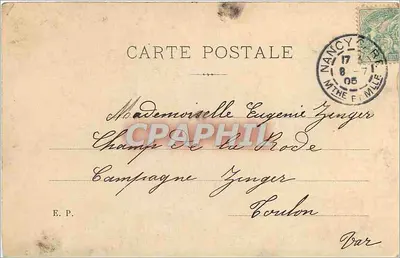 CARTE POSTALE
NANCY GARE
17
8 - 7
05
MTHE ET MLLE
Mademoiselle Eugenie Zinger
CPAPHIL
Champ De la Rode
Campagne Zinger
E. P.
Toulon
Var